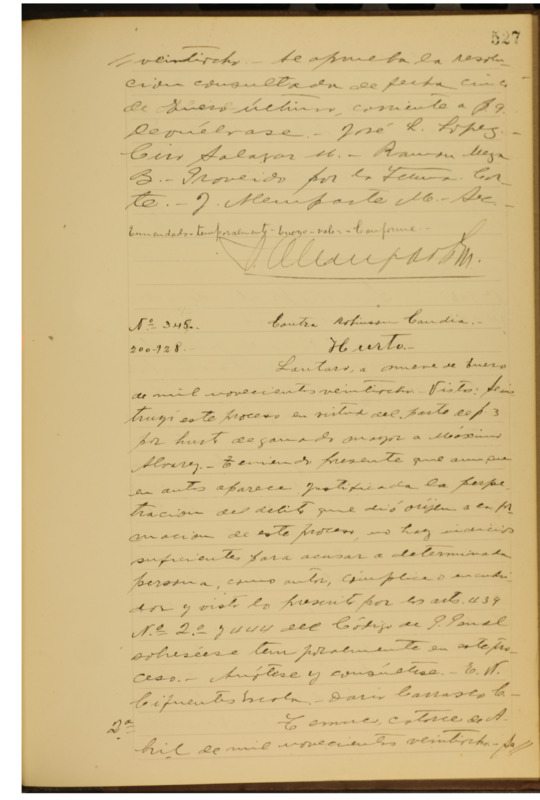 527
veintiocho.- Se aprueba la resolu-
cion consultada de fecha cinco
de Enero último, corriente a f 9.
Devuélvase.- José L. Lopez.-
Ciro Salazar M.- Ramon Meza
B.- Proveido por la Iltma. Cor-
te.- J. Memparte M.- Sec.-
Enmendado-temporalmente-Enero-vale-Conforme.-
No 348.- Contra Robinson Candia.-
200-928.- Hurto.-
Lautaro, a nueve de Enero
de mil novecientos veintiocho. Vistos: Se ins
truyó este proceso en virtud del parte de f 3
por hurto de ganado mayor a Máximo
Alvarez.- Teniendo presente que aunque
en autos aparece justificada la perpe-
tracion del delito que dió oríjen a la for
macion de este proceso, no hay indicios
suficientes para acusar a determinada
persona, como autor, cómplice o encubri-
dor y visto lo prescrito por los arts. 439
No 2o y 444 del Código de P. Penal
sobreséese temporalmente en este pro-
ceso.- Anótese y consúltese.- E. N.
Cifuentes Escola.- Dario Carrasco C-
2a Temuco, catorce de A-
bril de mil novecientos veintiocho.-